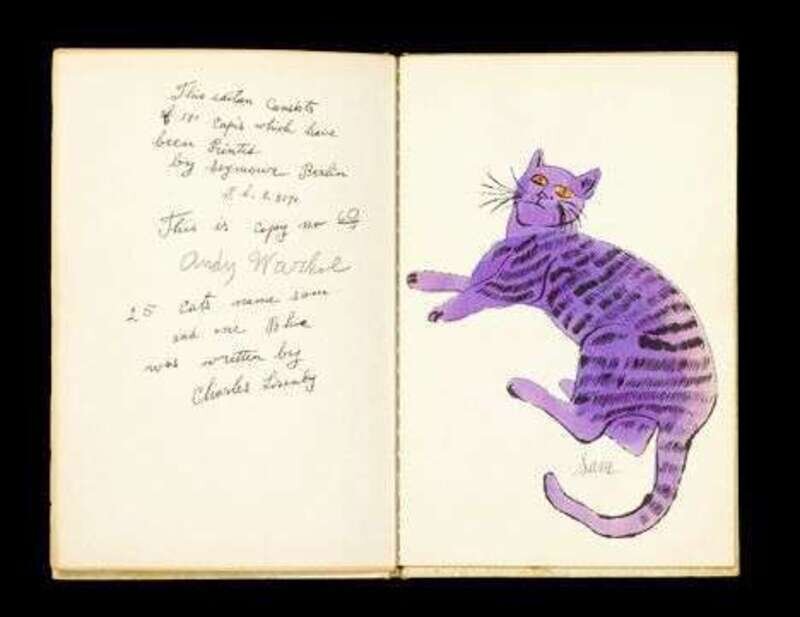 This edition consists
of 190 copis which have
been Printed
by Seymour Berlin
This is copy no 60
Andy Warhol
25 cats name sam
and one Blue
was written by
Charles Lisanby
Sam